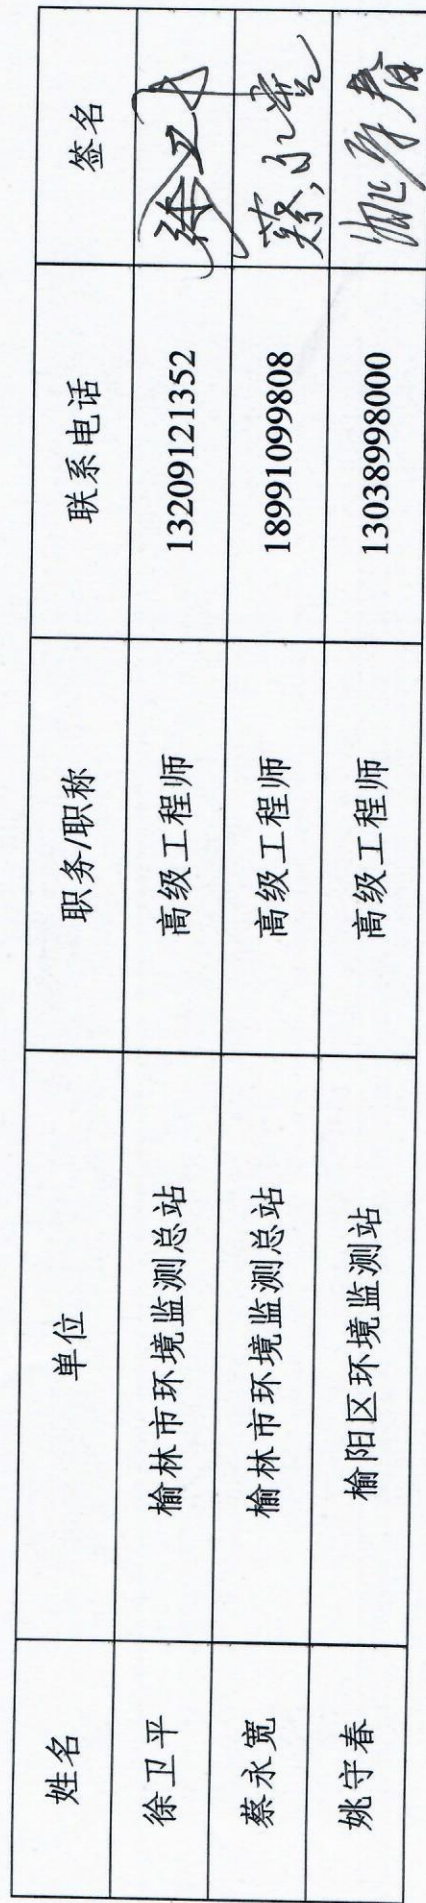 姓名 单位 职务/职称 联系电话 签名
徐卫平 榆林市环境监测总站 高级工程师 13209121352 徐卫平
蔡永宽 榆林市环境监测总站 高级工程师 18991099808 蔡永宽
姚守春 榆阳区环境监测站 高级工程师 13038998000 姚守春